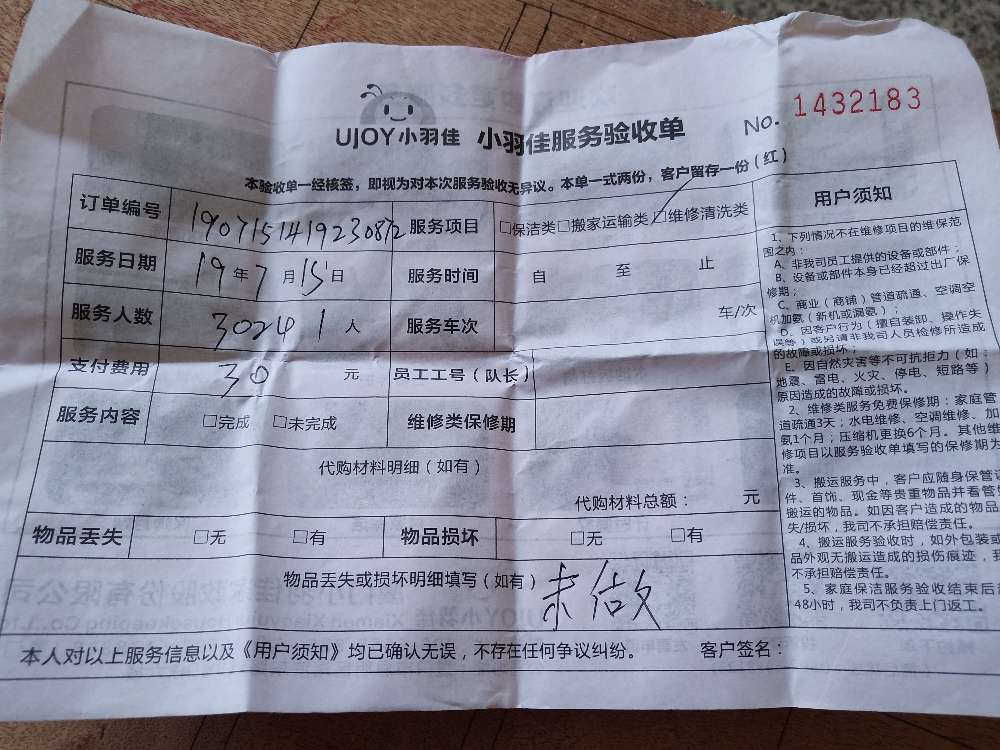 UJOY小羽佳 小羽佳服务验收单 No. 1432183
本验收单一经核签，即视为对本次服务验收无异议。本单一式两份，客户留存一份（红）
订单编号 1907151419230872 服务项目 □保洁类□搬家运输类□维修清洗类
服务日期 19年7月15日 服务时间 自 至 止
服务人数 30241人 服务车次 车/次
支付费用 30 元 员工工号（队长）
服务内容 □完成 □未完成 维修类保修期
代购材料明细（如有）
代购材料总额： 元
物品丢失 □无 □有 物品损坏 □无 □有
物品丢失或损坏明细填写（如有） 未做
本人对以上服务信息以及《用户须知》均已确认无误，不存在任何争议纠纷。 客户签名：
用户须知
1、下列情况不在维修项目的维保范
围之内：
A、非我司员工提供的设备或部件；
B、设备或部件本身已经超过出厂保
修期；
C、商业（商铺）管道疏通、空调空
机加氨（新机或漏氨）；
D、因客户行为（擅自装卸、操作失
误等）或另请非我司人员检修所造成
的故障或损坏；
E、因自然灾害等不可抗拒力（如：
地震、雷电、火灾、停电、短路等）
原因造成的故障或损坏。
2、维修类服务免费保修期：家庭管
道疏通3天；水电维修、空调维修、加
氨1个月；压缩机更换6个月。其他维
修项目以服务验收单填写的保修期为
准。
3、搬运服务中，客户应随身保管证
件、首饰、现金等贵重物品并看管
搬运的物品。如因客户造成的物品
失/损坏，我司不承担赔偿责任。
4、搬运服务验收时，如外包装或
品外观无搬运造成的损伤痕迹，我
不承担赔偿责任。
5、家庭保洁服务验收结束后
48小时，我司不负责上门返工。